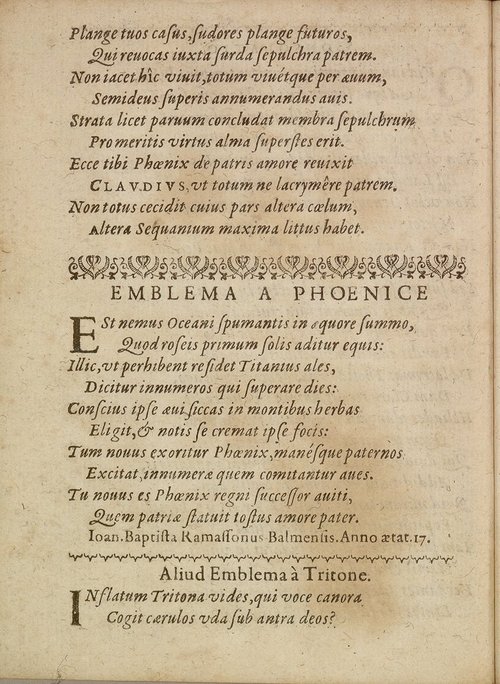 Plange tuos caſus, ſudores plange futuros,
Qui reuocas iuxta ſurda ſepulchra patrem.
Non iacet hîc viuit, totum viuétque per æuum,
Semideus ſuperis annumerandus auis.
Strata licet paruum concludat membra ſepulchrum
Pro meritis virtus alma ſuperſtes erit.
Ecce tibi Phœnix de patris amore reuixit
CLAVDIVS, vt totum ne lacrymêre patrem.
Non totus cecidit cuius pars altera cœlum,
Altera Sequanium maxima littus habet.
EMBLEMA A PHOENICE
ESt nemus Oceani ſpumantis in æquore ſummo,
Quod roſeis primum ſolis aditur equis:
Illic, vt perhibent reſidet Titanius ales,
Dicitur innumeros qui ſuperare dies:
Conſcius ipſe æui, ſiccas in montibus herbas
Eligit, & notis ſe cremat ipſe focis:
Tum nouus exoritur Phœnix, manéſque paternos
Excitat, innumeræ quem comitantur aues.
Tu nouus es Phœnix regni ſucceſſor auiti,
Quem patriæ ſtatuit toſtus amore pater.
Ioan. Baptiſta Ramaſſonus Balmenſis. Anno ætat. 17.
Aliud Emblema à Tritone.
INflatum Tritona vides, qui voce canora
Cogit cærulos vda ſub antra deos?